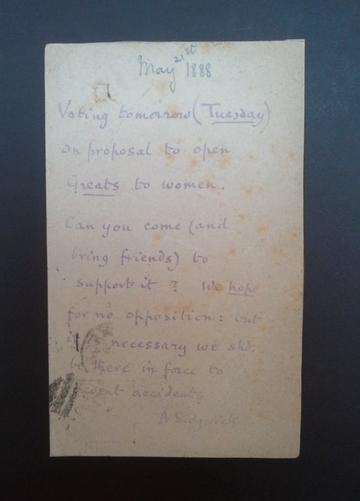 May 21st 1888
Voting tomorrow (Tuesday)
on proposal to open
Greats to women.
Can you come (and
bring friends) to
support it? We hope
for no opposition: but
necessary we shd.
be there in force to
prevent accidents
A Sidgwick